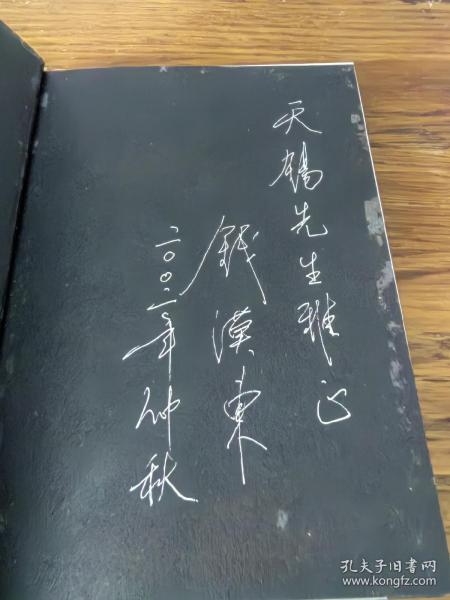 天锡先生雅正
钱漠東
二〇〇二年仲秋
孔夫子旧书网
www.kongfz.com